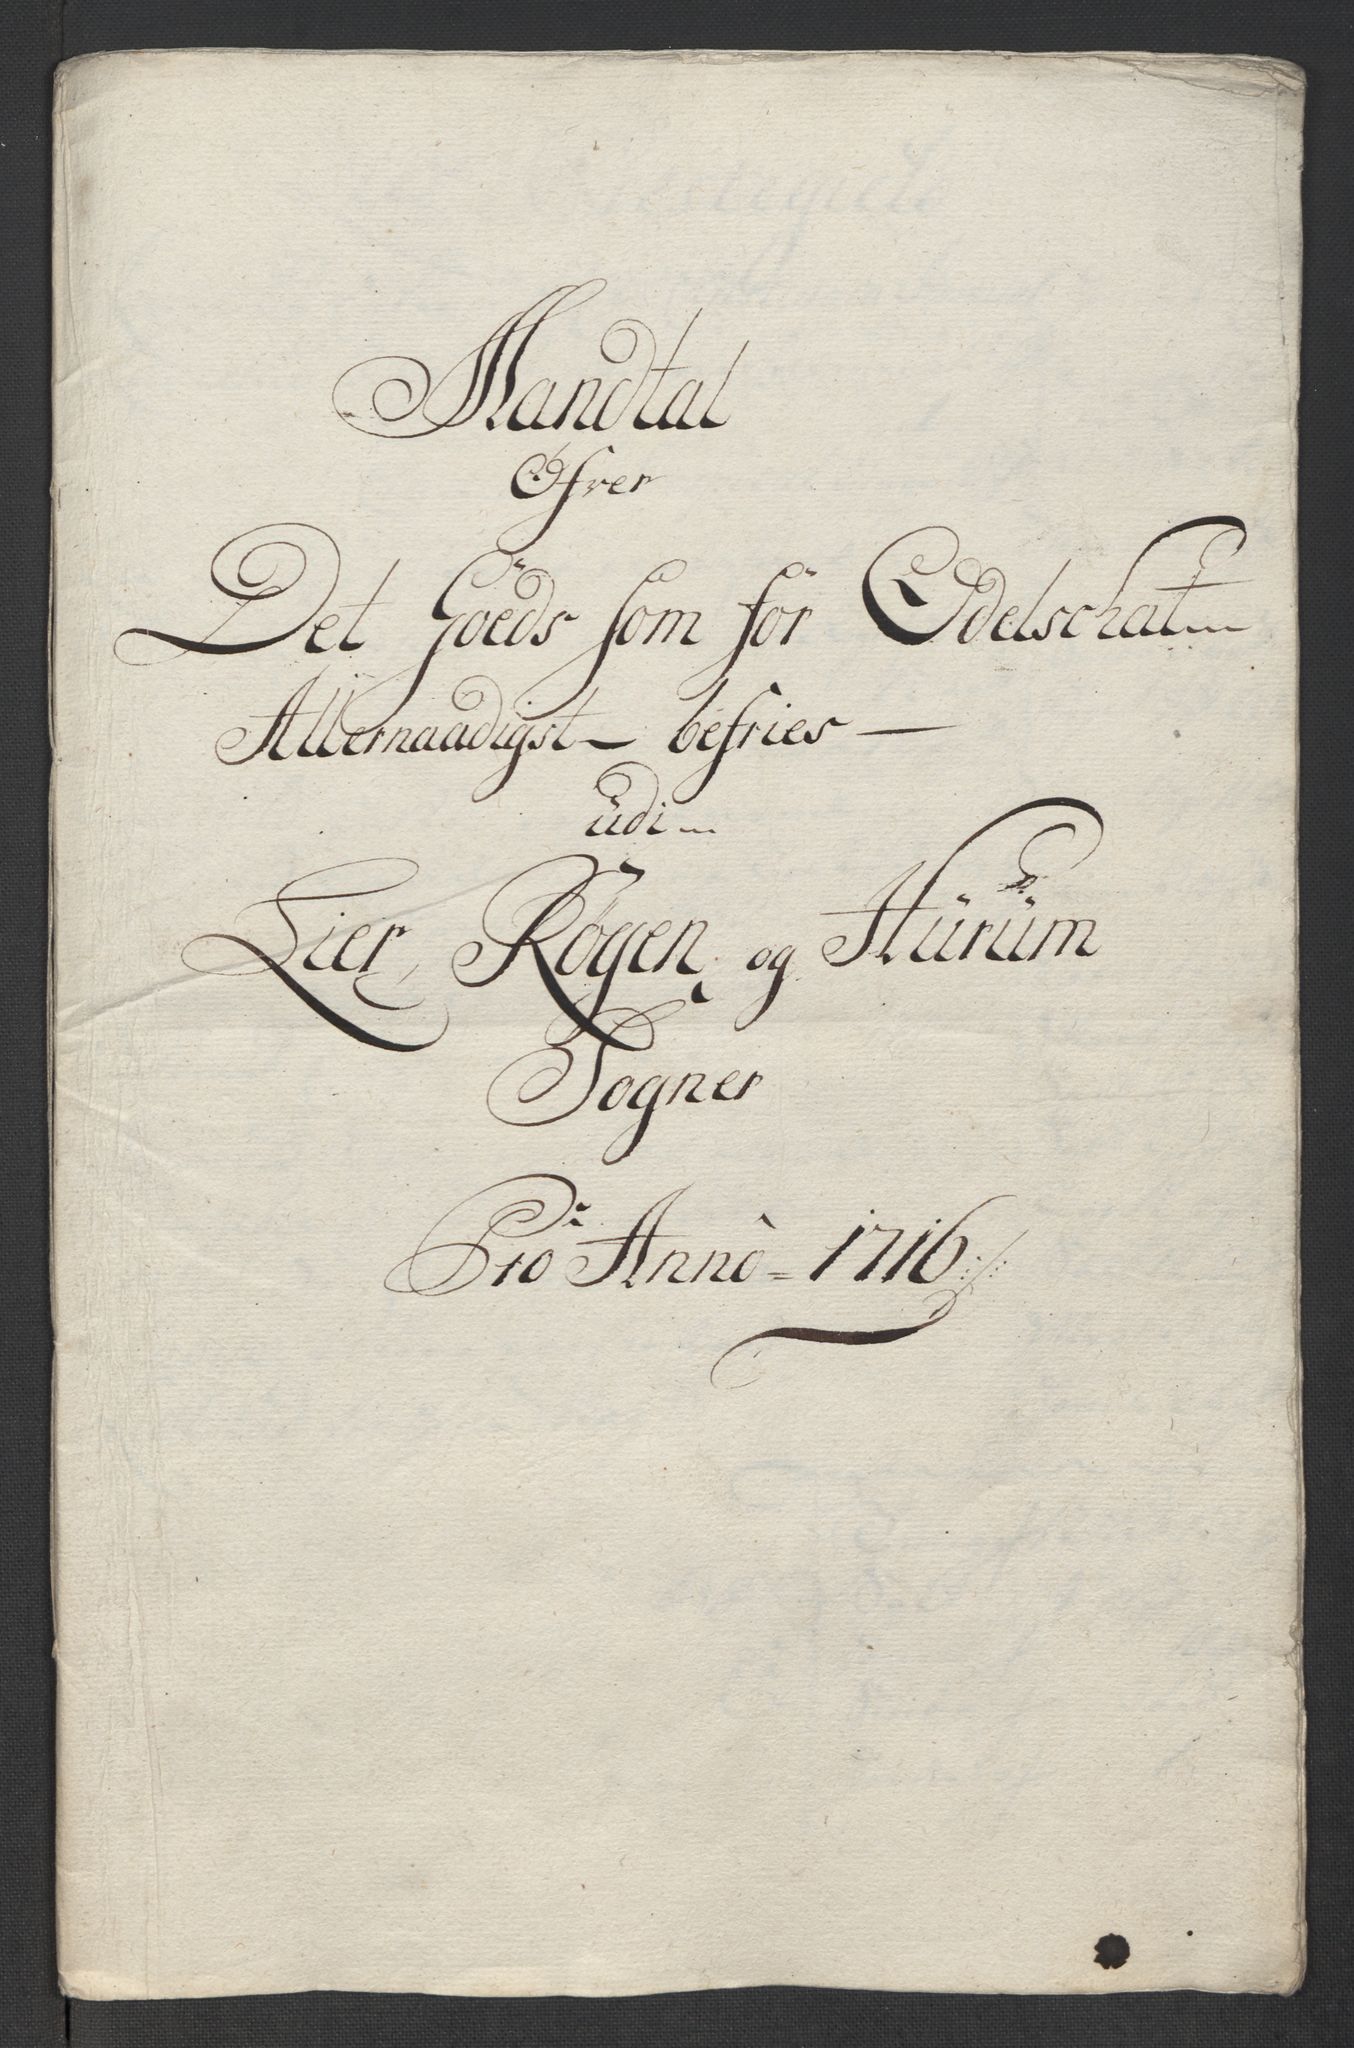 Mandtal
Ofver
Det Goeds som for Odelschat
Allernaadigst - befries -
udi
Lier, Røgen og Hurum
Sogner
Pro Anno = 1716